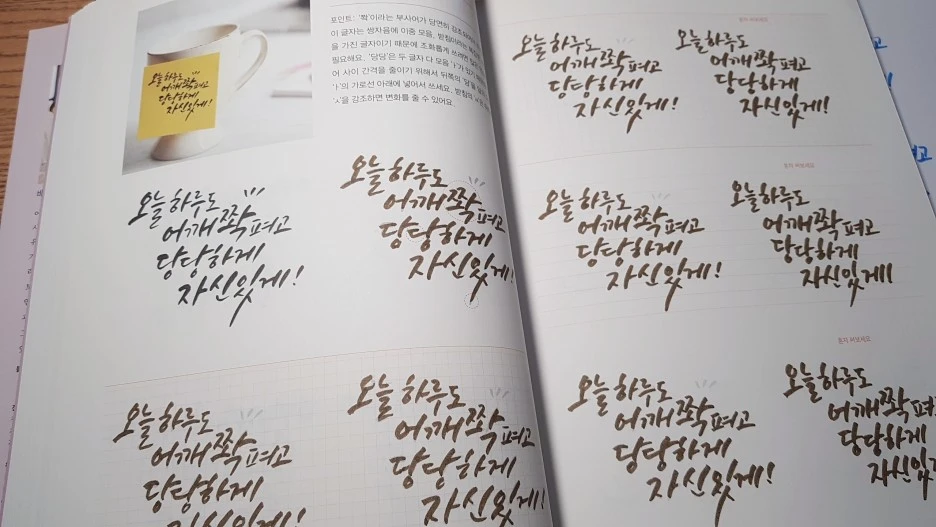 오늘하루도
어깨쫙펴고
당당하게
자신있게!
포인트: '쫙'이라는 부사어가 당연히 강조되어야
이 글자는 쌍자음에 이중 모음, 받침이라는
을 가진 글자이기 때문에 조화롭게 쓰려면
필요해요. '당당'은 두 글자 다 모음 'ㅏ'가
어 사이 간격을 줄이기 위해서 뒤쪽의 '당'을
'ㅏ'의 가로선 아래에 넣어서 쓰세요. 받침의
'ㅅ'을 강조하면 변화를 줄 수 있어요.
오늘하루도
어깨쫙펴고
당당하게
자신있게!
오늘하루도
어깨쫙펴고
당당하게
자신있게!
오늘하루도
어깨쫙펴고
당당하게
자신있게!
오늘하루도
어깨쫙펴고
당당하게
자신있게!
혼자 써보세요
오늘하루도
어깨쫙펴고
당당하게
자신있게!
오늘하루도
어깨쫙펴고
당당하게
자신있게!
혼자 써보세요
오늘하루도
어깨쫙펴고
당당하게
자신있게!
오늘하루도
어깨쫙펴고
당당하게
자신있게
혼자 써보세요
오늘하루도
어깨쫙펴고
당당하게
자신있게!
오늘하루도
어깨쫙펴
당당하게
자신있